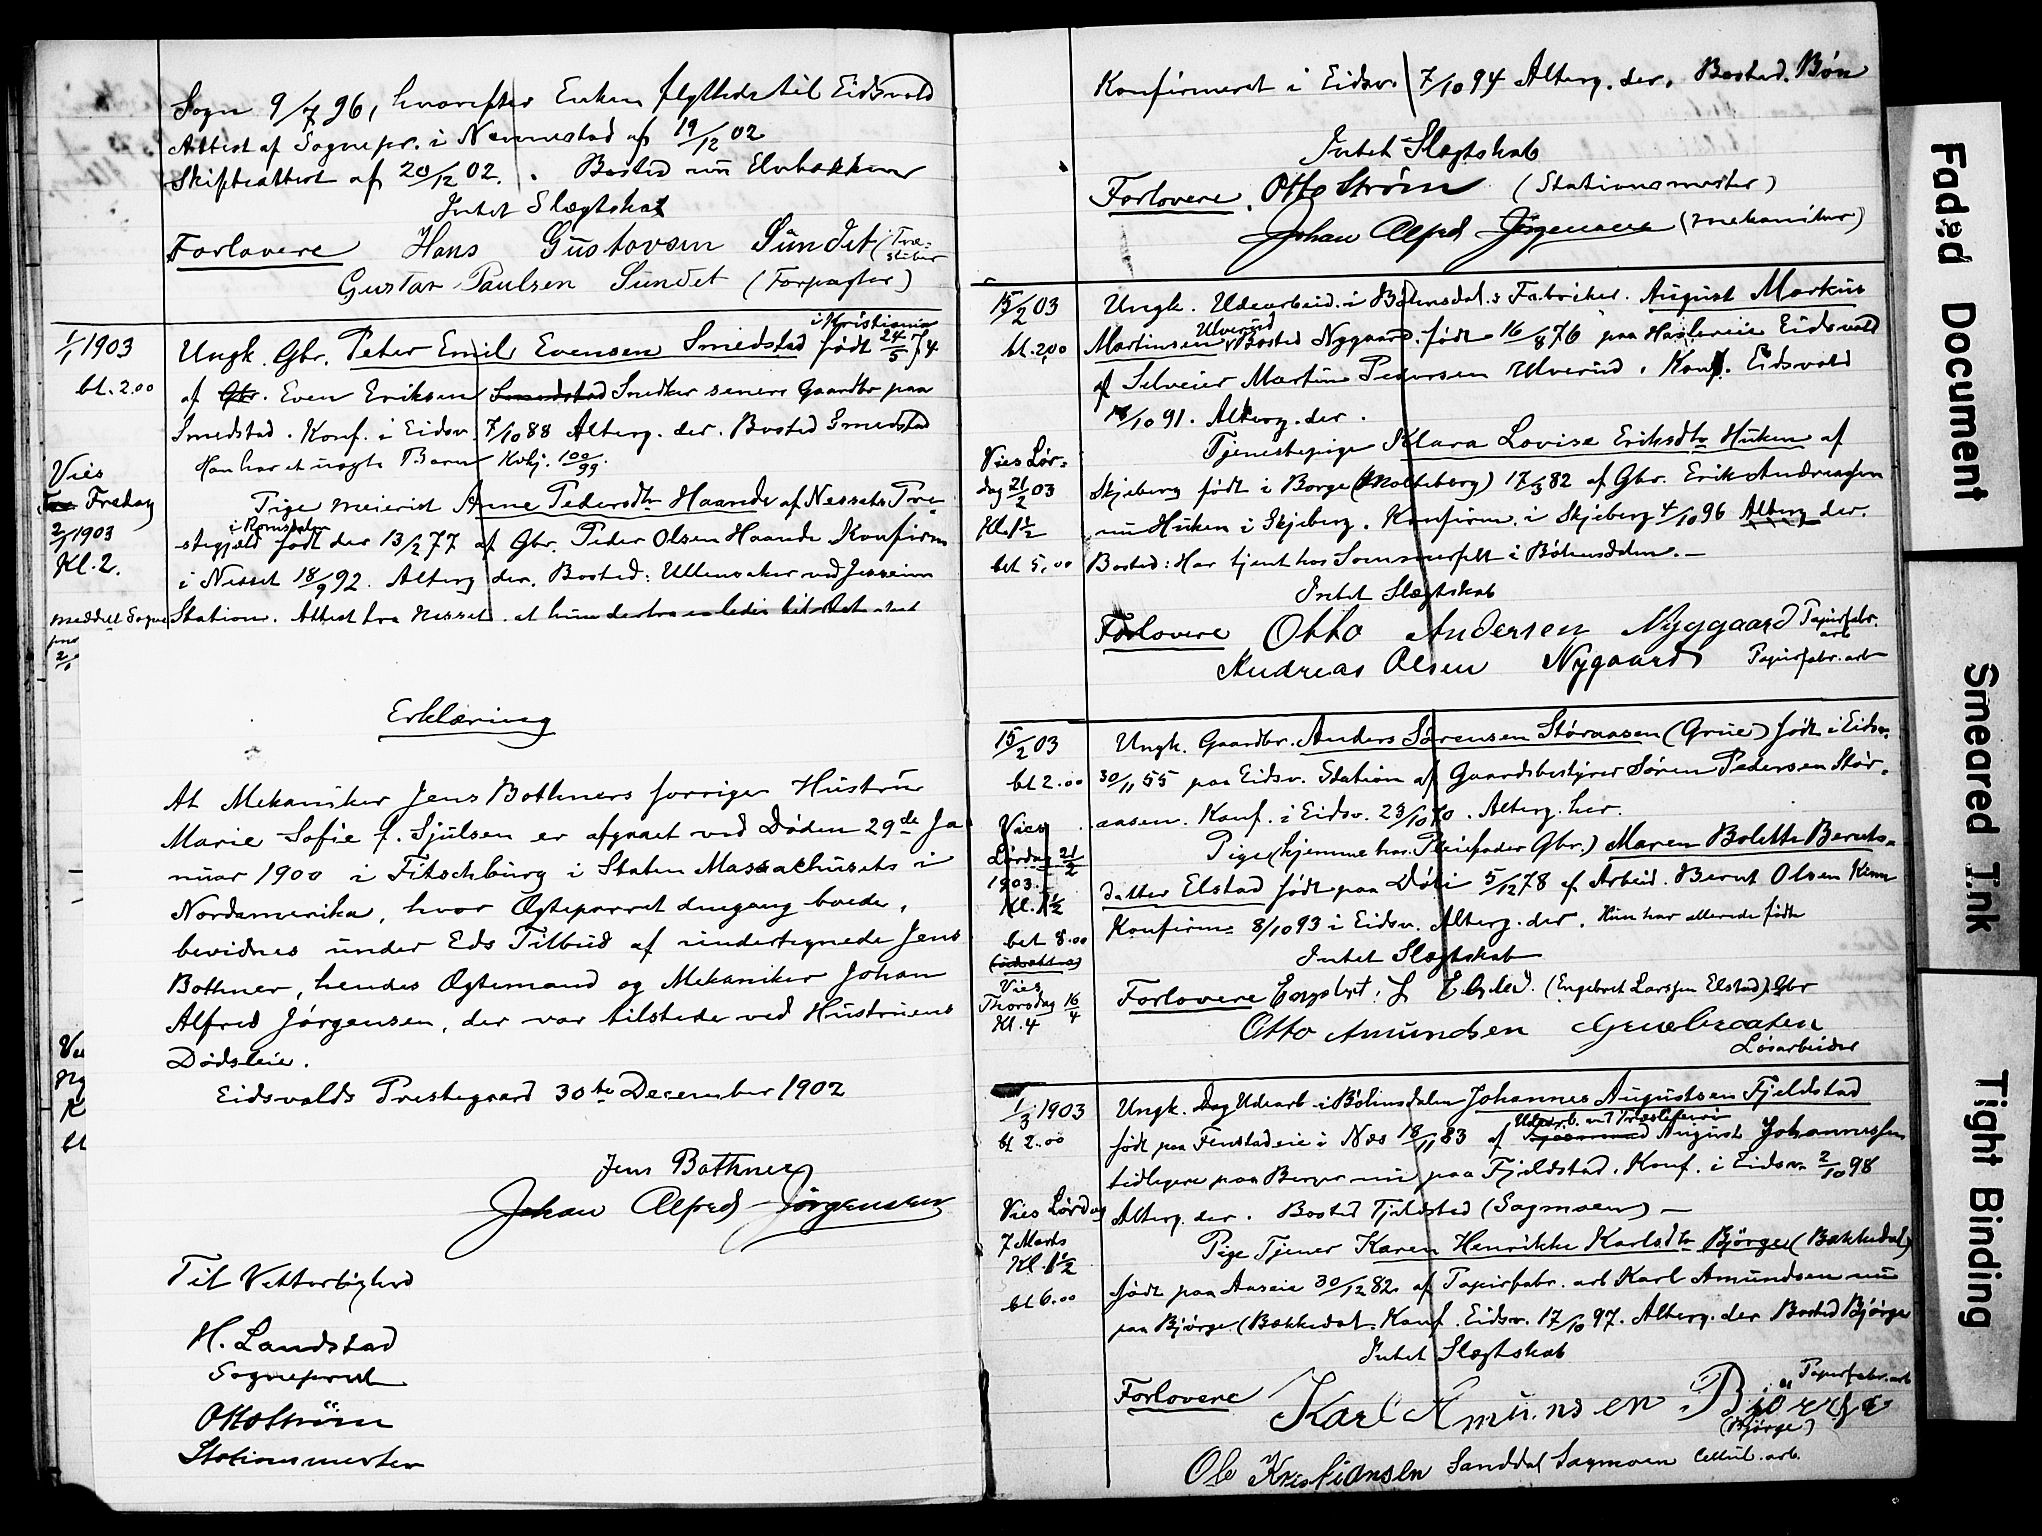 Sogn 9/7 96, hvorefter Enken flyttede til Eidsvold
Attest af Sognepr. i Nannestad af 19/12 02
Skifteattest af 20/12 02. Bosted nu Elvebakken
Intet Slægtskab
Forlovere Hans Gustavsen Sundet
Gustav Paulsen Sundet (Forpagter)
1/1 1903
bt. 2.00
Ungk. Gbr. Peter Emil Evensen Smedstad født 24/5 74
i Kristiania
af Gbr. Even Eriksen Smedstad Snedker senere Gaardbr paa
Smedstad. Konf. i Eidsv. 7/10 88 Alterg. der. Bosted Smedstad
Han har et uægte Barn Kvkj. 100/99.
Vies
Fredag
2/1 1903
Kl. 2.
Pige Meierist Anne Pedersdtr Haande af Nessets Præ-
i Romsdalen
stegjæld født der 13/2 77 af Gbr. Peder Olsen Haande Konfirm
i Nesset 18/9 92. Alterg der. Bosted: Ullensaker ved Jessheim
Meddelt Sogne
Station. Attest fra Nesset at hun derfra er ledig
Erklæring
At Mekaniker Jens Bothners forrige Hustru
Marie Sofie f. Sjulsen er afgaaet ved Døden 29de Ja
nuar 1900 i Fitschburg i Staten Massachusets i
Nordamerika, hvor Ægteparret dengang boede,
bevidnes under Eds Tilbud af undertegnede Jens
Bothner, hendes Ægtemand og Mekaniker Johan
Alfred Jørgensen, der var tilstede ved Hustruens
Dødsleie.
Eidsvolds Prestegaard 30te December 1902
Jens Bothner
Johan Alfred Jørgensen
Til Vitterlighed
H. Landstad
Sogneprest
Otto Strøm
Stationsmester
Konfirmeret i Eidsv. 7/10 94 Alterg. der. Bosted. Bøn
Intet Slægtskab
Forlovere. Otto Strøm (Stationsmester)
Johan Alfred Jørgensen (Mekaniker)
15/2 03
bt. 2,00
Ungk. Udearbeid. i Bøhnsdal.s Fabriker. August Markus
Ulverud
Martinsen Bosted Nygaard. født 16/8 76 paa Haslereie Eidsvold
af Selveier Martin Pedersen Ulverud. Konf. Eidsvold
/10 91. Alterg. der.
Vies Lør-
dag 21/2 03
Kl. 1 1/2
bet 5,00
Tjenestepige Klara Lovise Eriksdtr Huken af
Skjeberg født i Borge (Molteberg) 17/3 82 af Gbr. Erik Andreassen
nu Huken i Skjeberg. Konfirm. i Skjeberg 4/10 96 Alterg der.
Bosted: Har tjent hos Sommerfelt i Bøhnsdalen. —
Intet Slægtskab
Forlovere Otto Andersen Nyggaard Papirfabr. arb
Andreas Olsen Nygaard Papirfabr. arb
15/2 03
bt 2.00
Ungk. Gaardbr. Anders Sørensen Støraasen (Grue) født i Eidsv.
30/11 55 paa Eidsv. Station af Gaardsbestyrer Søren Pedersen Stør-
aasen. Konf. i Eidsv. 23/10 70. Alterg. her.
Vies
Lørdag 21/2
1903.
Kl. 1 1/2
bet 8.00
(udsættes)
Vies
Thorsdag 16/4
Kl. 4
Pige (hjemme hos Pleiefader Gbr.) Maren Bolette Bernts-
datter Elstad født paa Døli 5/12 78 af Arbeid. Bernt Olsen
Konfirm. 8/10 93 i Eidsv. Alterg. der. Hun har allerede født
Intet Slægtskab
Forlovere Engebret. L Elsted. (Engebret Larssen Elstad) Gbr
Otto Amundsen Gruebraaten
Løsarbeider
1/3 1903
bt 2.00
Ungk. Dag Udearb. i Bøhnsdalen Johannes Augustsen Fjeldstad
født paa Fenstadeie i Næs 18/11 83 af August Johannessen
tidligere paa Berger nu paa Fjeldstad. Konf. i Eidsv. 2/10 98
Vies Lørdag
7 Marts
Kl. 1 1/2
bt 6.00
Alterg. der. Bosted Fjeldstad (Sagmoen) —
Pige Tjener Karen Henrikke Karlsdtr Bjørge (Bakkedal)
født paa Aaseie 30/12 82 af Papirfabr. arb Karl Amundsen nu
paa Bjørge (Bakkedal. Konf. Eidsv. 17/10 97. Alterg. der Bosted Bjørge
Intet Slægtskab
Forlovere Karl Amundsen Bjørge Papirfabr. arb
(Bjørge)
Ole Kristiansen Sanddal Sagmoen Cellul. arb.
Faded Document
Smeared Ink
Tight Binding